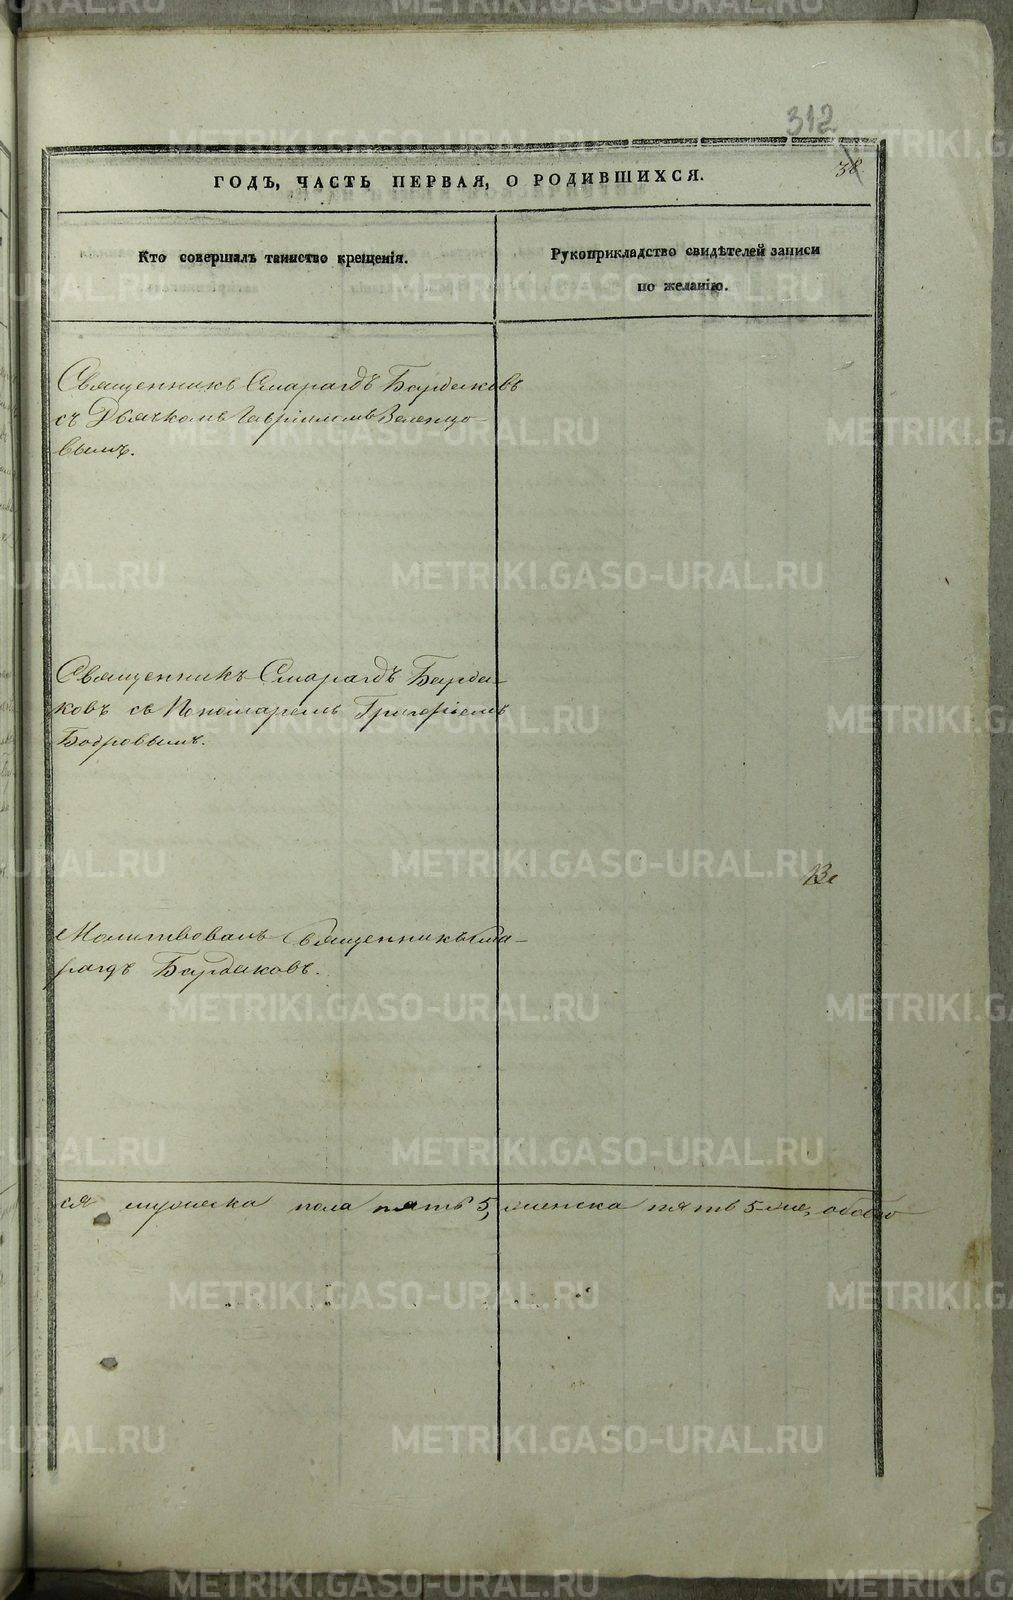 312
38
ГОДЪ, ЧАСТЬ ПЕРВАЯ, О РОДИВШИХСЯ.
Кто совершалъ таинство крещенія.
Рукоприкладство свидѣтелей записи
по желанію.
Священникъ Смарагдъ Бардаковъ
съ Дьячкомъ Гавріиломъ Зеленцо-
вымъ.
Священникъ Смарагдъ Барда-
ковъ съ Пономаремъ Григоріемъ
Бобровымъ.
Молитвовалъ Священникъ Сма-
рагдъ Бардаковъ.
ся мужеска пола пять 5, женска пять 5-ть, обоего
METRIKI.GASO-URAL.RU